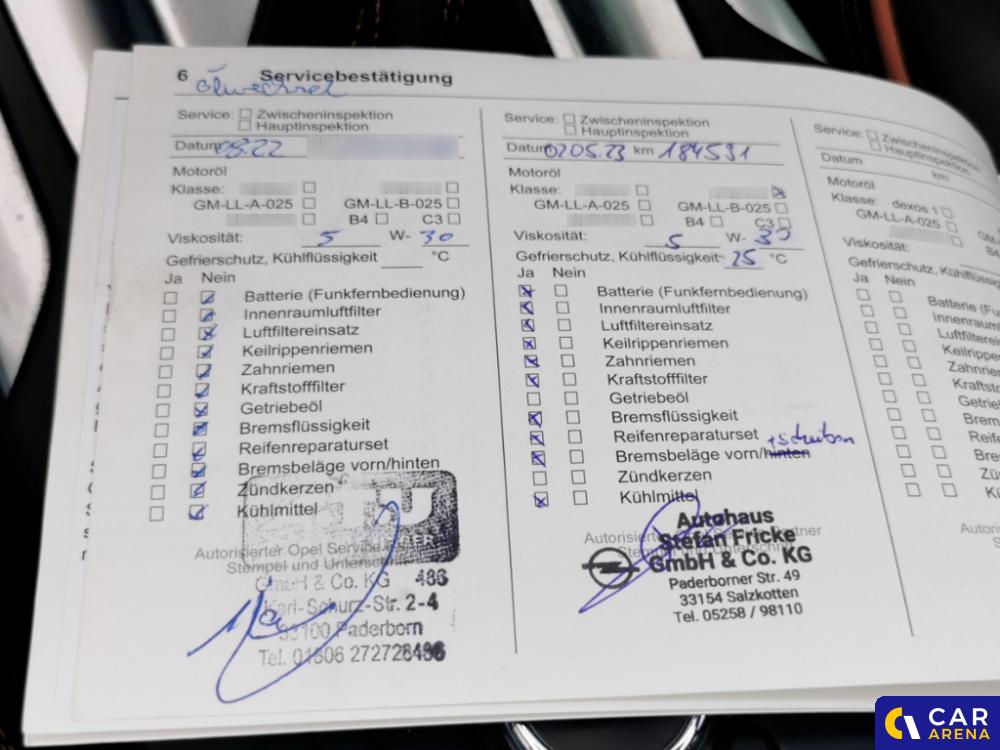 6 Servicebestätigung
Ölwechsel
Service: Zwischeninspektion
Hauptinspektion
Datum 08.22
Motoröl
Klasse:
GM-LL-A-025 GM-LL-B-025
B4 C3
Viskosität: 5 W- 30
Gefrierschutz, Kühlflüssigkeit °C
Ja Nein
Batterie (Funkfernbedienung)
Innenraumluftfilter
Luftfiltereinsatz
Keilrippenriemen
Zahnriemen
Kraftstofffilter
Getriebeöl
Bremsflüssigkeit
Reifenreparaturset
Bremsbeläge vorn/hinten
Zündkerzen
Kühlmittel
Autorisierter Opel Service
Stempel und Unterschrift
GmbH & Co. KG 486
Karl-Schurz-Str. 2-4
33100 Paderborn
Tel. 01806 272728486
Service: Zwischeninspektion
Hauptinspektion
Datum 02.05.23 km 184591
Motoröl
Klasse:
GM-LL-A-025 GM-LL-B-025
B4 C3
Viskosität: 5 W- 30
Gefrierschutz, Kühlflüssigkeit - 25 °C
Ja Nein
Batterie (Funkfernbedienung)
Innenraumluftfilter
Luftfiltereinsatz
Keilrippenriemen
Zahnriemen
Kraftstofffilter
Getriebeöl
Bremsflüssigkeit
Reifenreparaturset
+ Scheiben
Bremsbeläge vorn/hinten
Zündkerzen
Kühlmittel
Autorisierter Opel Service Partner
Stempel und Unterschrift
Autohaus
Stefan Fricke
GmbH & Co. KG
Paderborner Str. 49
33154 Salzkotten
Tel. 05258 / 98110
Service: Zwischeninspektion
Hauptinspektion
Datum km
Motoröl
Klasse: dexos 1
GM-LL-A-025 GM
B4
Viskosität:
Gefrierschutz, Kühlflüssig
Ja Nein
Batterie (Fu
Innenraumlu
Luftfilterein
Keilrippen
Zahnriem
Kraftsto
Getrie
Brem
Reife
Bre
Zü
Kü
Autoris
S
CAR
ARENA